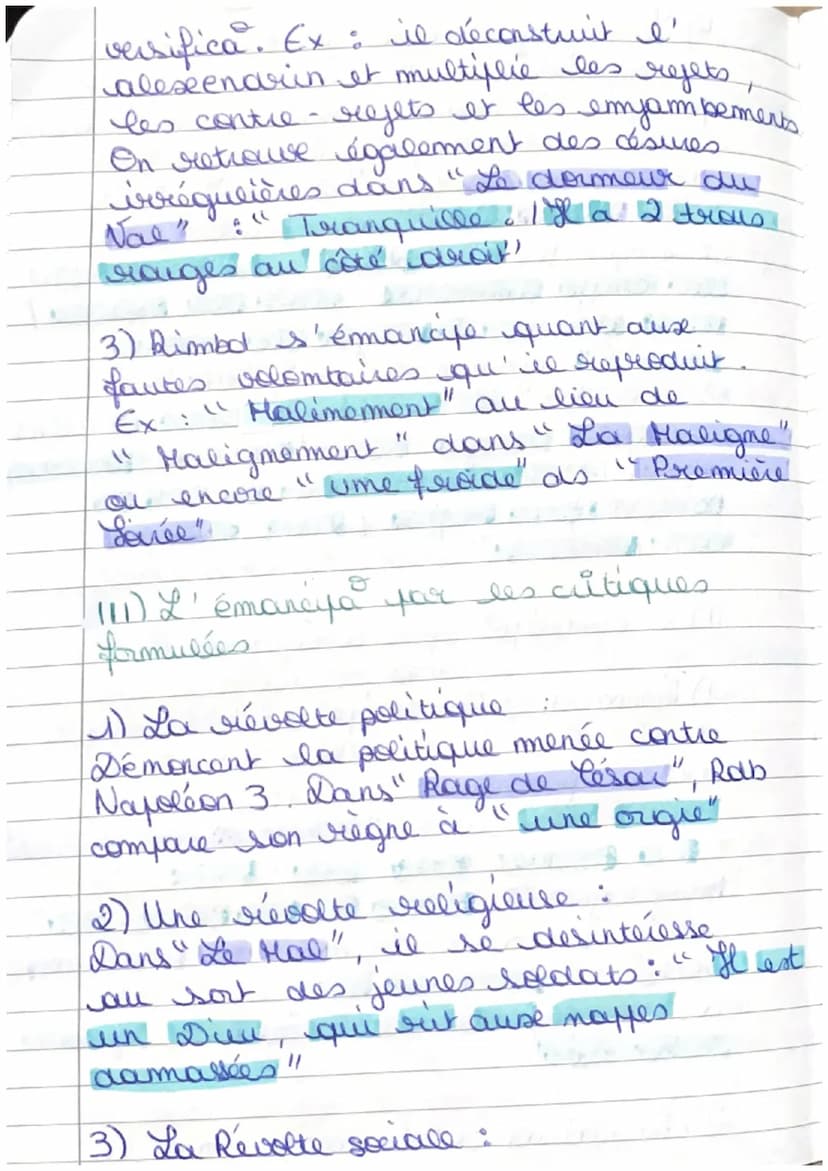 versificaº. Ex : il déconstruit l'
alexendrin et multiplie les rejets,
les contre-rejets et les enjambements
On retrouve également des césures
irrégulières dans "Le dormeur du
Val" : " Tranquille. / Il a 2 trous
rouges au côté droit"
3) Rimbd s'émancipe quant aux
fautes volontaires qu'il reproduit.
Ex : " Malinement" au lieu de
" Malignement " dans " La Maligne"
ou encore " une froide" ds " Première
Soirée".
III) L'émancipaº par les critiques
formulées
1) La révolte politique :
Dénoncent la politique menée contre
Napoléon 3. Dans " Rage de César", Rdb
compare son règne à " une orgie"
2) Une révolte religieuse :
Dans " Le Mal", il se desintéresse
au sort des jeunes soldats : " Il est
un Dieu, qui rit aux nappes
damassées"
3) La Révolte sociale :